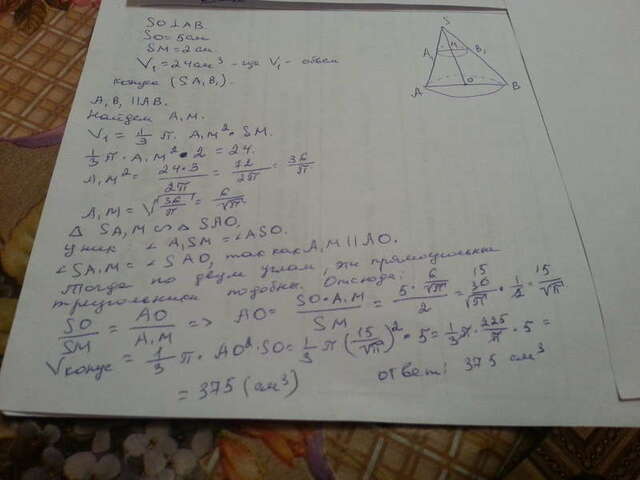 SO ⊥ AB.
SO = 5 см
SM = 2 см.
V₁ = 24 см³ - где V₁ - объем
конуса (SA₁B₁).
A₁B₁ || AB.
Найдем A₁M.
V₁ = 1/3 π · A₁M² · SM.
1/3 π · A₁M² · 2 = 24.
A₁M² = 24·3/2π = 72/2π = 36/π
A₁M = √(36/π) = 6/√π
Δ SA₁M ∾ Δ SAO.
У них ∠ A₁SM = ∠ASO.
∠SA₁M = ∠ SAO, так как A₁M || AO.
Тогда по двум углам, эти прямоугольные
треугольники подобны. Отсюда:
SO/SM = AO/A₁M => AO = SO·A₁M/SM = 5·6/√π/2 = 30/√π · 1/2 = 15/√π
Vконус = 1/3 π · AO² · SO = 1/3 π (15/√π)² · 5 = 1/3 π · 225/π · 5 =
= 375 (см³)
ответ: 375 см³
S
A₁
M
B₁
A
O
B